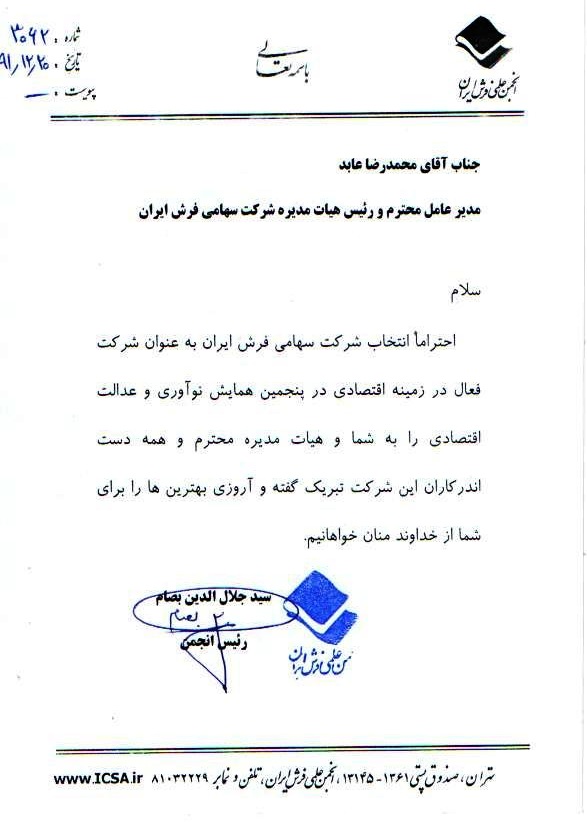 باسمه تعالی
انجمن علمی فرش ایران
شماره : ۳۰۶۲
تاریخ : ۹۱٫۱۲٫۲۰
پیوست : —
جناب آقای محمدرضا عابد
مدیر عامل محترم و رئیس هیات مدیره شرکت سهامی فرش ایران
سلام
احتراماً انتخاب شرکت سهامی فرش ایران به عنوان شرکت
فعال در زمینه اقتصادی در پنجمین همایش نوآوری و عدالت
اقتصادی را به شما و هیات مدیره محترم و همه دست
اندرکاران این شرکت تبریک گفته و آروزی بهترین ها را برای
شما از خداوند منان خواهانیم.
سید جلال الدین بصام
بصام
رئیس انجمن
انجمن علمی فرش ایران
تهران، صندوق پستی ۱۳۶۱-۱۳۱۴۵، انجمن علمی فرش ایران، تلفن و نمابر ۸۱۰۳۲۲۲۹ www.ICSA.ir